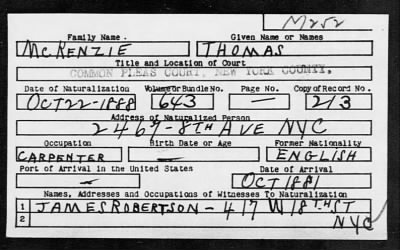 M252
Family Name. Given Name or Names
McKENZIE THOMAS
Title and Location of Court
COMMON PLEAS COURT, NEW YORK COUNTY.
Date of Naturalization Volume or Bundle No. Page No. Copy of Record No.
OCT 22-1888 643 — 213
Address of Naturalized Person
2467-8TH AVE NYC
Occupation Birth Date or Age Former Nationality
CARPENTER — ENGLISH
Port of Arrival in the United States Date of Arrival
— OCT 1881
Names, Addresses and Occupations of Witnesses To Naturalization
1 JAMES ROBERTSON - 417 W 18TH ST
2 NYC